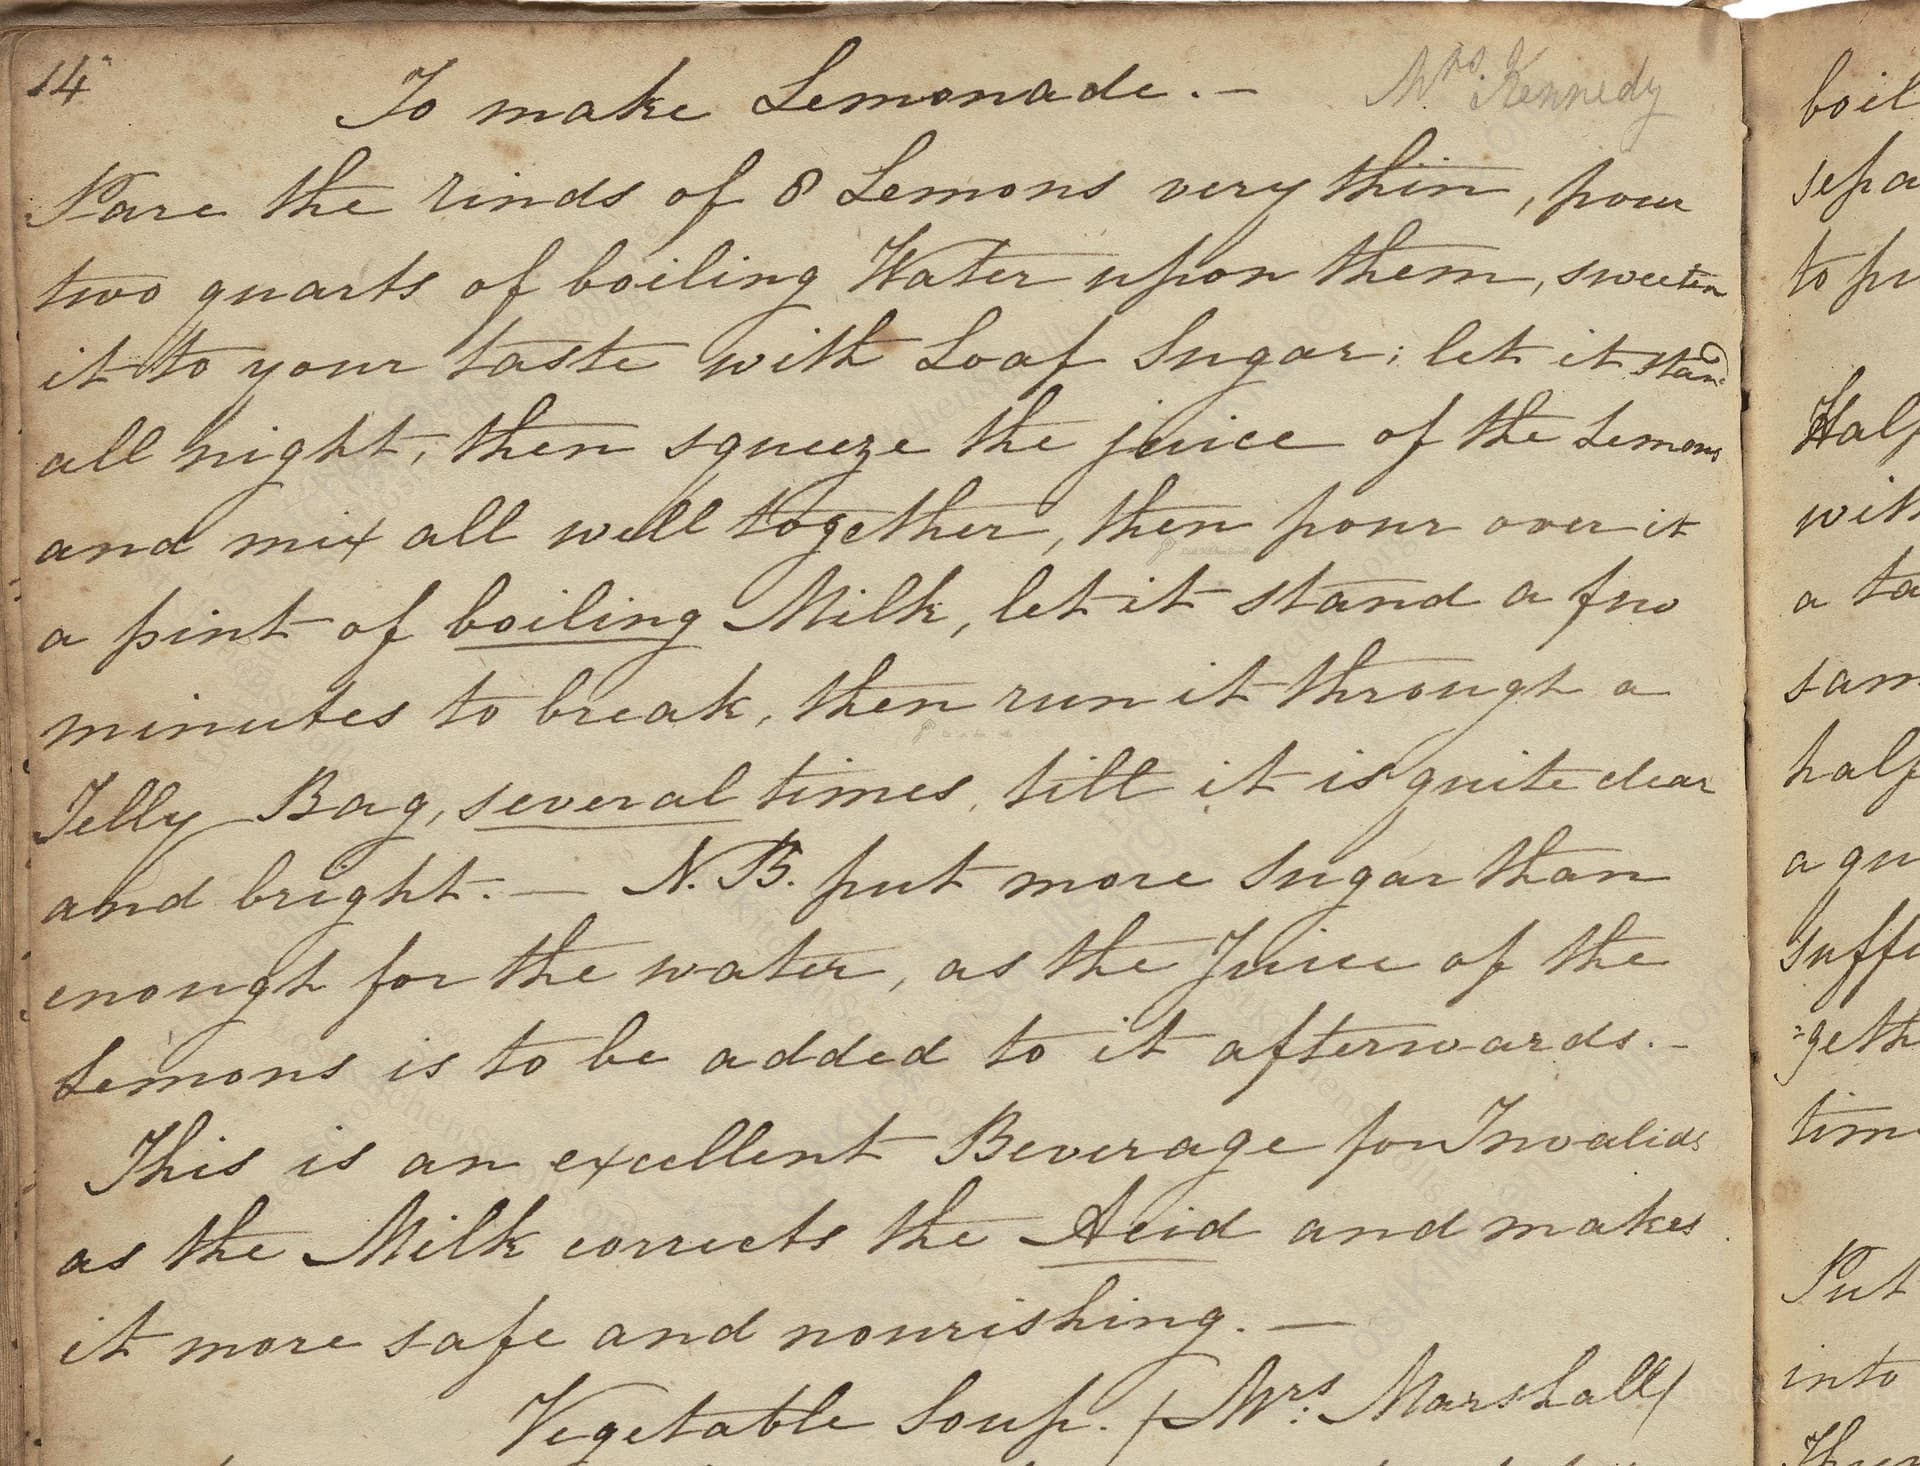 14
To make Lemonade. – Mrs. Kennedy
Pare the rinds of 8 Lemons very thin, pour
two quarts of boiling Water upon them, sweeten
it to your taste with Loaf Sugar; let it stand
all night; then squeeze the juice of the Lemons
and mix all well together, then pour over it
a pint of boiling Milk, let it stand a few
minutes to break, then run it through a
Jelly Bag, several times, till it is quite clear
and bright. – N.B. put more Sugar than
enough for the water, as the Juice of the
Lemons is to be added to it afterwards. –
This is an excellent Beverage for Invalids
as the Milk corrects the Acid and makes
it more safe and nourishing. –
Vegetable Soup. (Mrs: Marshall)
boil
sepa
to pu
Half
with
a ta
sam
half
a qu
suffi
=geth
time
Put
into